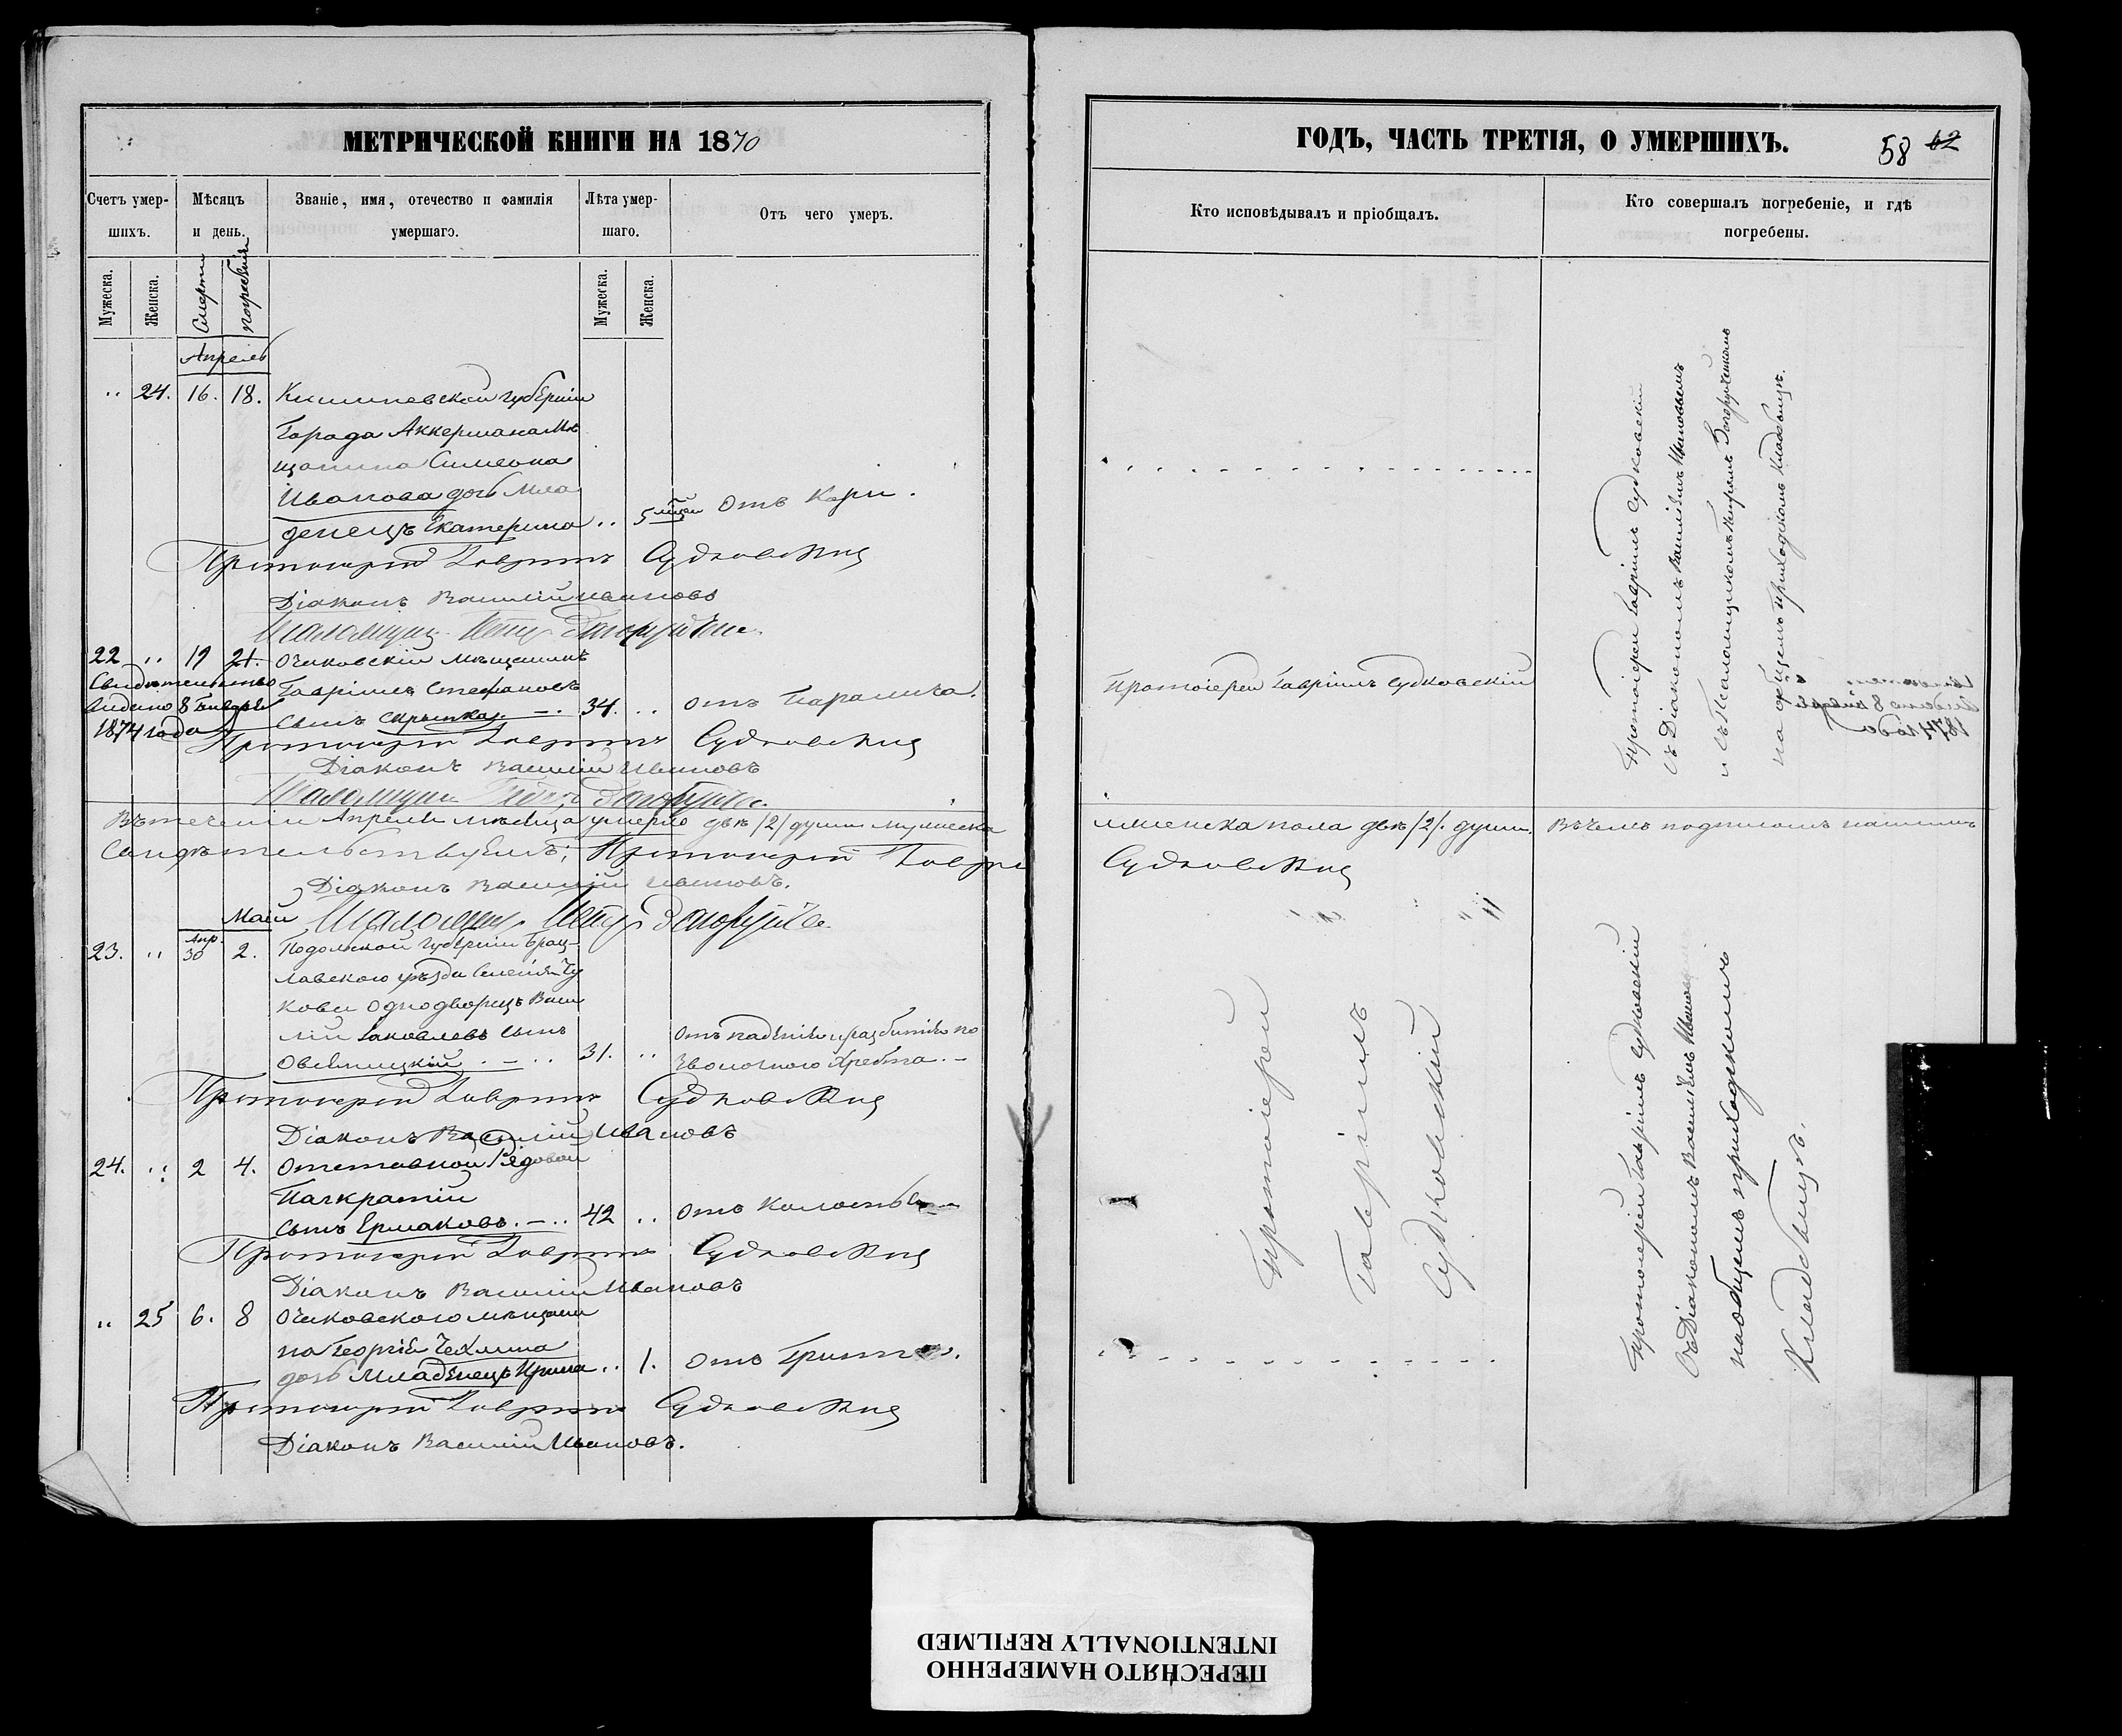 МЕТРИЧЕСКОЙ КНИГИ НА 1870
Счетъ умер-
шихъ.
Мѣсяцъ
и день.
Званіе, имя, отечество и фамилія
умершаго.
Лѣта умер-
шаго.
Отъ чего умеръ.
Мужеска.
Женска.
Смерти
погребенія
Мужеска.
Женска.
Апрель
24. 16. 18. Кишиневской губерніи
Города Аккермана Мѣ
щанина Симеона
Иванова дочь Мла
денецъ Екатерина 5 Отъ Кори.
Протоіерей Гавріилъ Судковскій
Діаконъ Василій Ивановъ
22 19 21. Очаковскій мѣщанинъ
Свидетельство
Гавріилъ Стефановъ
выдано 8 Января
сынъ Скрыпка 34. отъ Паралича.
1874 года
Протоіерей Гавріилъ Судковскій
Діаконъ Василій Ивановъ
Въ теченіи Апреля мѣсяца умерло двѣ /2/ души мужеска
Свидѣтельствуемъ; Протоіерей Гавріилъ
Діаконъ Василій Ивановъ.
Май
23. Апр. 30 2. Подольской губерніи Брац-
лавскаго уѣзда
Однодворецъ Васи
лій Іаковлевъ сынъ
31. отъ паденія и разбитія по
звоночного Хребта.
Протоіерей Гавріилъ Судковскій
Діаконъ Василій Ивановъ
24. 2 4. Отставной Рядовой
Панкратій
сынъ Ермаковъ. 42 отъ
Протоіерей Гавріилъ Судковскій
Діаконъ Василій Ивановъ
25 6. 8 Очаковского мѣщани
на Георгія
дочь Младенецъ Ирина 1. отъ
Протоіерей Гавріилъ Судковскій
Діаконъ Василій Ивановъ.
ГОДЪ, ЧАСТЬ ТРЕТІЯ, О УМЕРШИХЪ.
58 62
Кто исповѣдывалъ и пріобщалъ.
Кто совершалъ погребеніе, и гдѣ
погребены.
Протоіерей Гавріилъ Судковскій
съ Діакономъ Василіемъ Ивановымъ
и съ Пономаремъ
на общемъ приходскомъ кладбищѣ.
Протоіерей Гавріилъ Судковскій
и женска пола двѣ /2/. души. Въ чемъ подписомъ нашимъ
Судковскій
Протоіерей
Гавріилъ
Судковскій
Протоіерей Гавріилъ Судковскій
съ Діакономъ Василіемъ Ивановымъ
на общемъ приходскомъ
Кладбищѣ.
ПЕРЕСНЯТО НАМЕРЕННО
INTENTIONALLY REFILMED